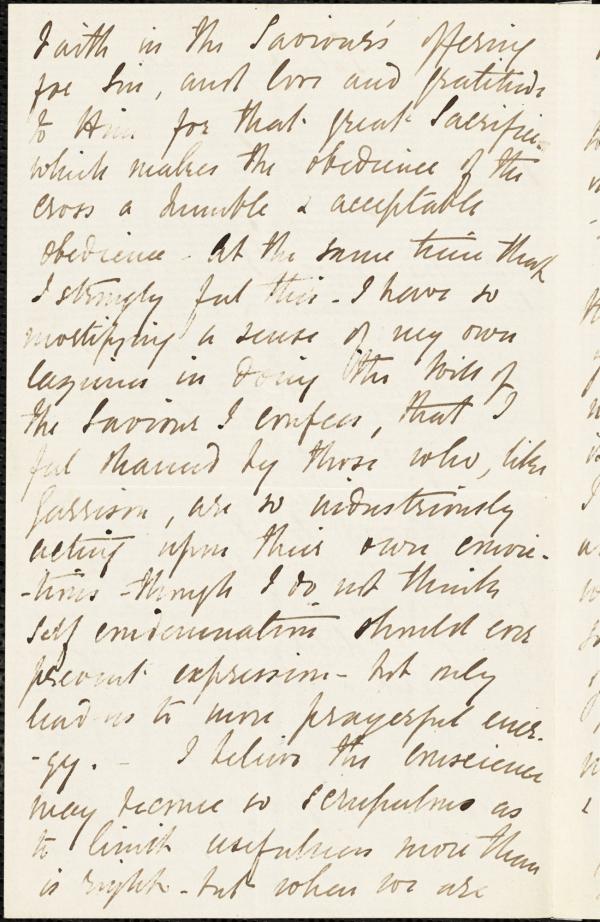 Faith in the Saviour's offering
for sin, and love and gratitude
to Him for that great Sacrifice
which makes the obedience of the
cross a humble & acceptable
obedience - At the same time that
I strongly feel this - I have so
mortifying a sense of my own
laziness in doing the Will of
the Saviour I confess, that I
feel shamed by those who, like
Garrison, are so industriously
acting upon their own convic-
-tions - though I do not think
self condemnation should ever
prevent expression - but only
lead us to more prayerful ener-
-gy. - I believe the conscience
may become so scrupulous as
to limit usefulness more than
is right - but when we are